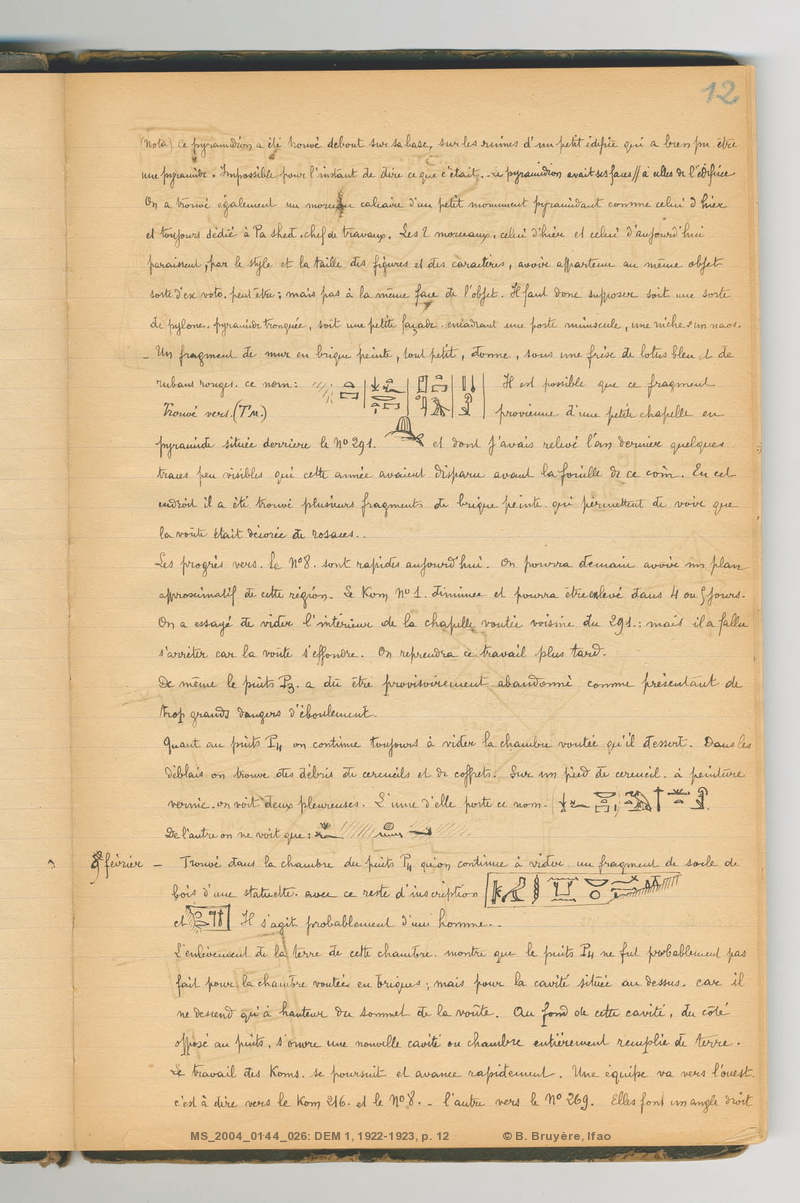 12
(Nota) Ce pyramidion a été trouvé debout sur sa base, sur les ruines d'un petit édifice qui a bien pu être
une pyramide. Impossible pour l'instant de dire ce que c'était. Le pyramidion avait ses faces // à celles de l'édifice
On a trouvé également un morceau calcaire d'un petit monument pyramidant comme celui d'hier
et toujours dédié à Pa shed. chef de travaux. Les 2 morceaux, celui d'hier et celui d'aujourd'hui
paraissent, par le style et la taille des figures et des caractères, avoir appartenu au même objet
sorte d'ex voto. peut être ; mais pas à la même face de l'objet. Il faut donc supposer soit une sorte
de pylone. pyramide tronquée, soit une petite façade. encadrant une porte minuscule, une niche. un naos.
_ Un fragment de mur en brique peinte, tout petit, donne, sous une frise de lotus bleu et de
rubans rouges. ce nom : Il est possible que ce fragment
Trouvé vers. provienne d'une petite chapelle en
pyramide située derrière le N° 291. et dont j'avais relevé l'an dernier quelques
traces peu visibles qui cette année avaient disparu avant la fouille de ce coin. En cet
endroit il a été trouvé plusieurs fragments de brique peinte. qui permettent de voir que
la voûte était décorée de rosaces..
Les progrès vers. le N° 8. sont rapides aujourd'hui. On pourra demain avoir un plan
approximatif de cette région. Le Kom N° 1. diminue et pourra être enlevé dans 4 ou 5 jours.
On a essayé de vider l'intérieur de la chapelle voutée voisine du 291. : mais il a fallu
s'arrêter car la voûte s'effondre. On reprendra ce travail plus tard.
De même le puits P3. a dû être provisoirement abandonné comme présentant de
trop grands dangers d'éboulement.
Quant au puits P4 on continue toujours à vider la chambre voutée qu'il dessert. Dans les
déblais on trouve des débris de cercueils et de coffrets. Sur un pied de cercueil. à peinture
vernie. on voit deux pleureuses. L'une d'elle porte ce nom.
De l'autre on ne voit que :
9 février – Trouvé dans la chambre du puits P4 qu'on continue à vider un fragment de socle de
bois d'une statuette. avec ce reste d'inscription
et Il s'agit probablement d'un homme..
L'enlèvement de la terre de cette chambre. montre que le puits P4 ne fut probablement pas
fait pour la chambre voutée en briques ; mais pour la cavité située au dessus. car il
ne descend qu'à hauteur du sommet de la voûte. Au fond de cette cavité, du côté
opposé au puits, s'ouvre une nouvelle cavité ou chambre entièrement remplie de terre.
Le travail des Koms. se poursuit et avance rapidement. Une équipe va vers l'ouest.
c'est à dire vers le Kom 216. et le N° 8. – l'autre vers le N° 269. Elles font un angle droit
MS_2004_0144_026: DEM 1, 1922-1923, p. 12 © B. Bruyère, Ifao